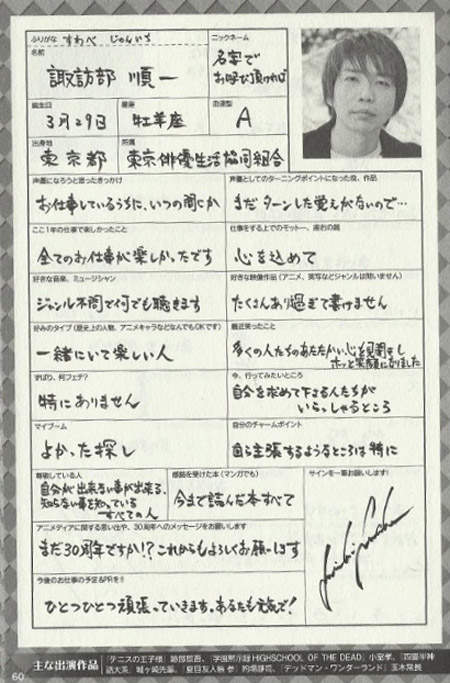 ふりがな すわべ じゅんいち
ニックネーム
名前
諏訪部 順一
名字で
お呼び頂ければ
誕生日
3月29日
星座
牡羊座
血液型
A
出身地
東京都
所属
東京俳優生活協同組合
声優になろうと思ったきっかけ
お仕事しているうちに、いつの間にか
声優としてのターニングポイントになった役、作品
まだターンした覚えがないので…
ここ1年の仕事で楽しかったこと
全てのお仕事が楽しかったです
仕事をする上でのモットー、座右の銘
心を込めて
好きな音楽、ミュージシャン
ジャンル不問で何でも聴きます
好きな映像作品(アニメ、実写などジャンルは問いません)
たくさんあり過ぎて書けません
好みのタイプ(歴史上の人物、アニメキャラなどなんでもOKです)
一緒にいて楽しい人
最近笑ったこと
多くの人たちのあたたかい心を見聞きし
ホッと笑顔になりました
ずばり、何フェチ?
特にありません
今、行ってみたいところ
自分を求めて下さる人たちが
いらっしゃるところ
マイブーム
よかった探し
自分のチャームポイント
自ら主張するようなところは特に
尊敬している人
自分が出来ない事が出来る、
知らない事を知っている
すべての人
感銘を受けた本(マンガでも)
今まで読んだ本すべて
サインを一筆お願いします!
アニメディアに関する思い出や、30周年へのメッセージをお願いします
まだ30周年ですか!?これからもよろしくお願いします
今後のお仕事の予定&PRを!!
ひとつひとつ頑張っていきます。あなたも元気で!
主な出演作品
『テニスの王子様』跡部景吾、『学園黙示録HIGHSCHOOL OF THE DEAD』小室孝、
『デッドマン・ワンダーランド』玉木常長
60